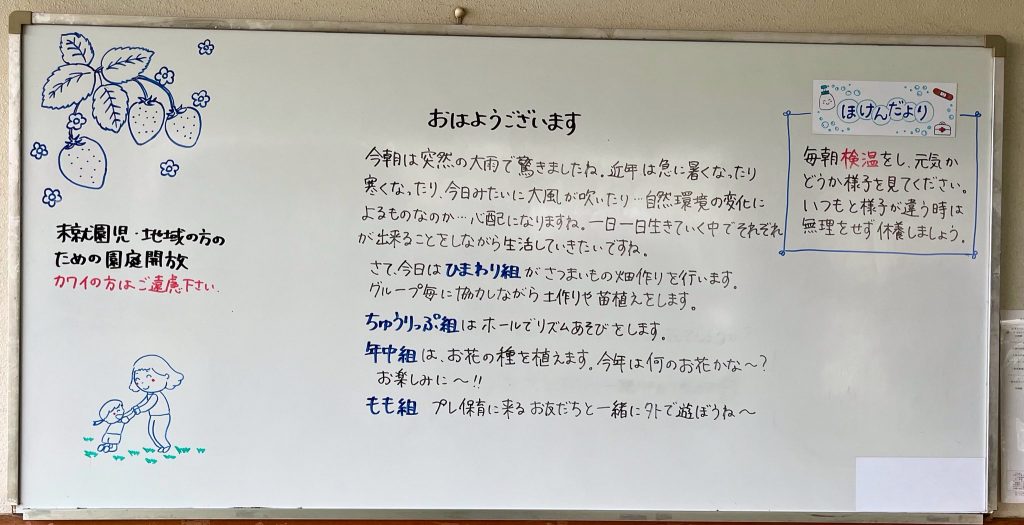 おはようございます
今朝は突然の大雨で驚きましたね。近年は急に暑くなったり
寒くなったり、今日みたいに大風が吹いたり…自然環境の変化に
よるものなのか…心配になりますね。一日一日生きていく中でそれぞれ
が出来ることをしながら生活していきたいですね。
さて、今日はひまわり組がさつまいもの畑作りを行います。
グループ毎に協力しながら土作りや苗植えをします。
ちゅうりっぷ組はホールでリズムあそびをします。
年中組は、お花の種を植えます。今年は何のお花かな〜?
お楽しみに〜!!
もも組 プレ保育に来るお友だちと一緒に外で遊ぼうね〜
未就園児・地域の方の
ための園庭開放
カワイの方はご遠慮下さい.
ほけんだより
毎朝検温をし、元気か
どうか様子を見てください。
いつもと様子が違う時は
無理をせず休養しましょう。